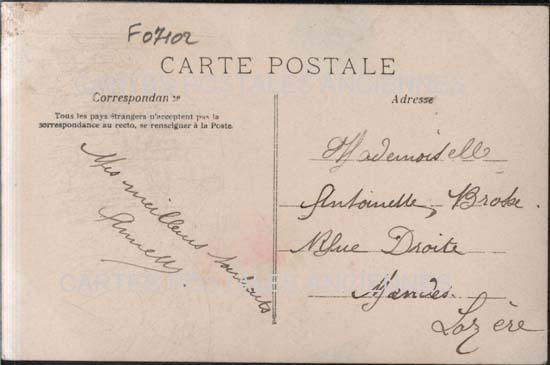 F07102
CARTE POSTALE
Correspondance
Tous les pays étrangers n'acceptent pas la
correspondance au recto, se renseigner à la Poste.
Mes meilleurs
Adresse
Mademoiselle
Antoinette
Rue Droite
Mende
Lozère
CARTES POSTALES ANCIENNES
CARTES POSTALES ANCIENNES